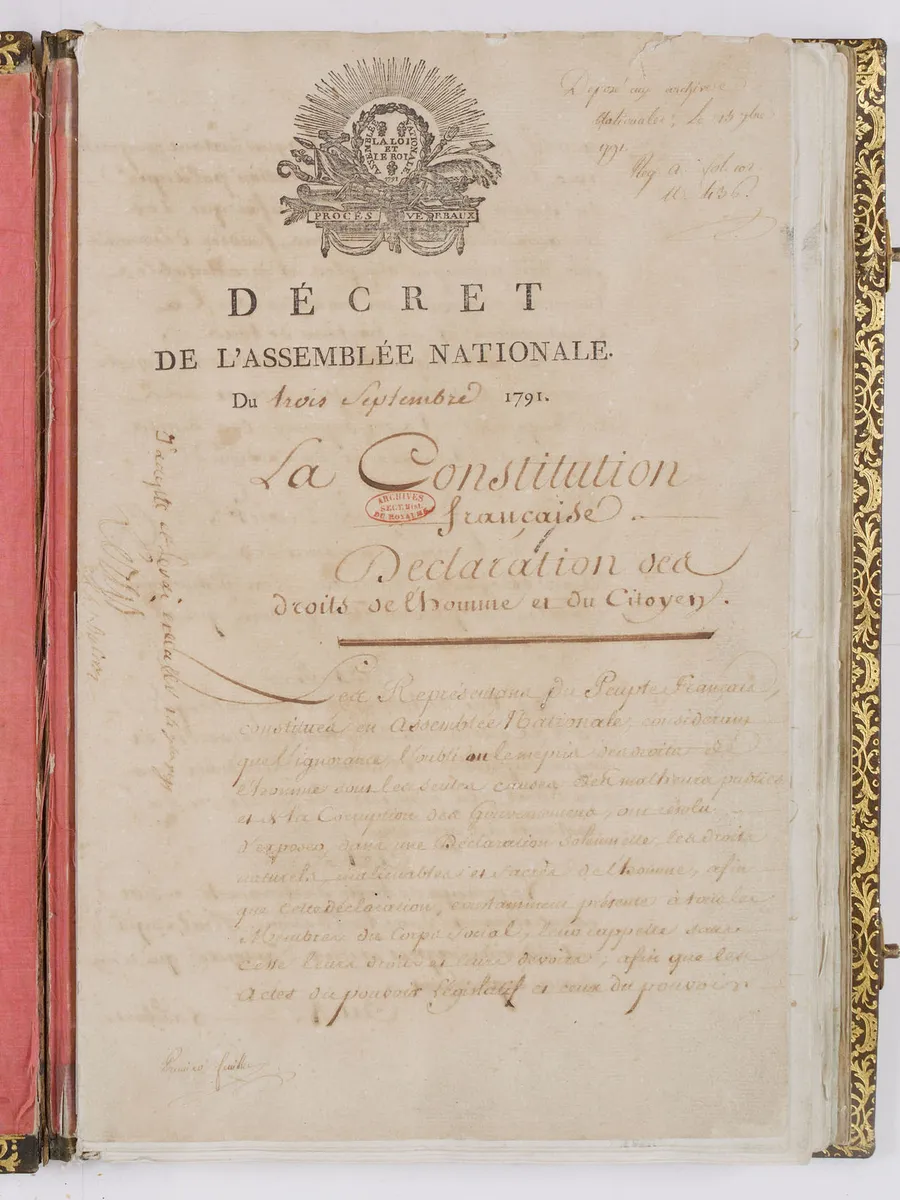 Deposé aux archives
Nationales, Le 13 7bre
1791.
Reg. A fol.
n. 436.
ASSEMBLÉE NATIONALE
LA LOI
ET
LE ROI
1791
PROCÈS VERBAUX
DÉCRET
DE L'ASSEMBLÉE NATIONALE.
Du trois Septembre 1791.
La Constitution
française.
ARCHIVES
SECT. HIST
DU ROYAUME
Déclaration des
droits de l'homme et du Citoyen.
Les Représentans du Peuple Français,
constitués en Assemblée Nationale, considérant
que l'ignorance, l'oubli ou le mépris des droits de
l'homme sont les seules causes des malheurs publics
et de la Corruption des Gouvernemens, ont résolu
d'exposer, dans une Déclaration solennelle, les droits
naturels, inaliénables et sacrés de l'homme, afin
que cette déclaration, constamment présente à tous les
Membres du Corps Social, leur rappelle sans
cesse leurs droits et leurs devoirs; afin que les
Actes du pouvoir Législatif et ceux du pouvoir
J'accepte et ferai exécuter 14 7bre 1791
Louis